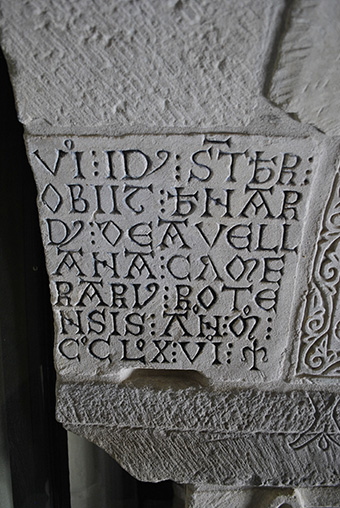 VI : ID' : S̄TBR :
OBIIT : BNAR
D' : DE AVELL
ANA : CAME
RARI' : ROTE
NSIS : AN̄ : M̊ :
C̊C LX : VI : †